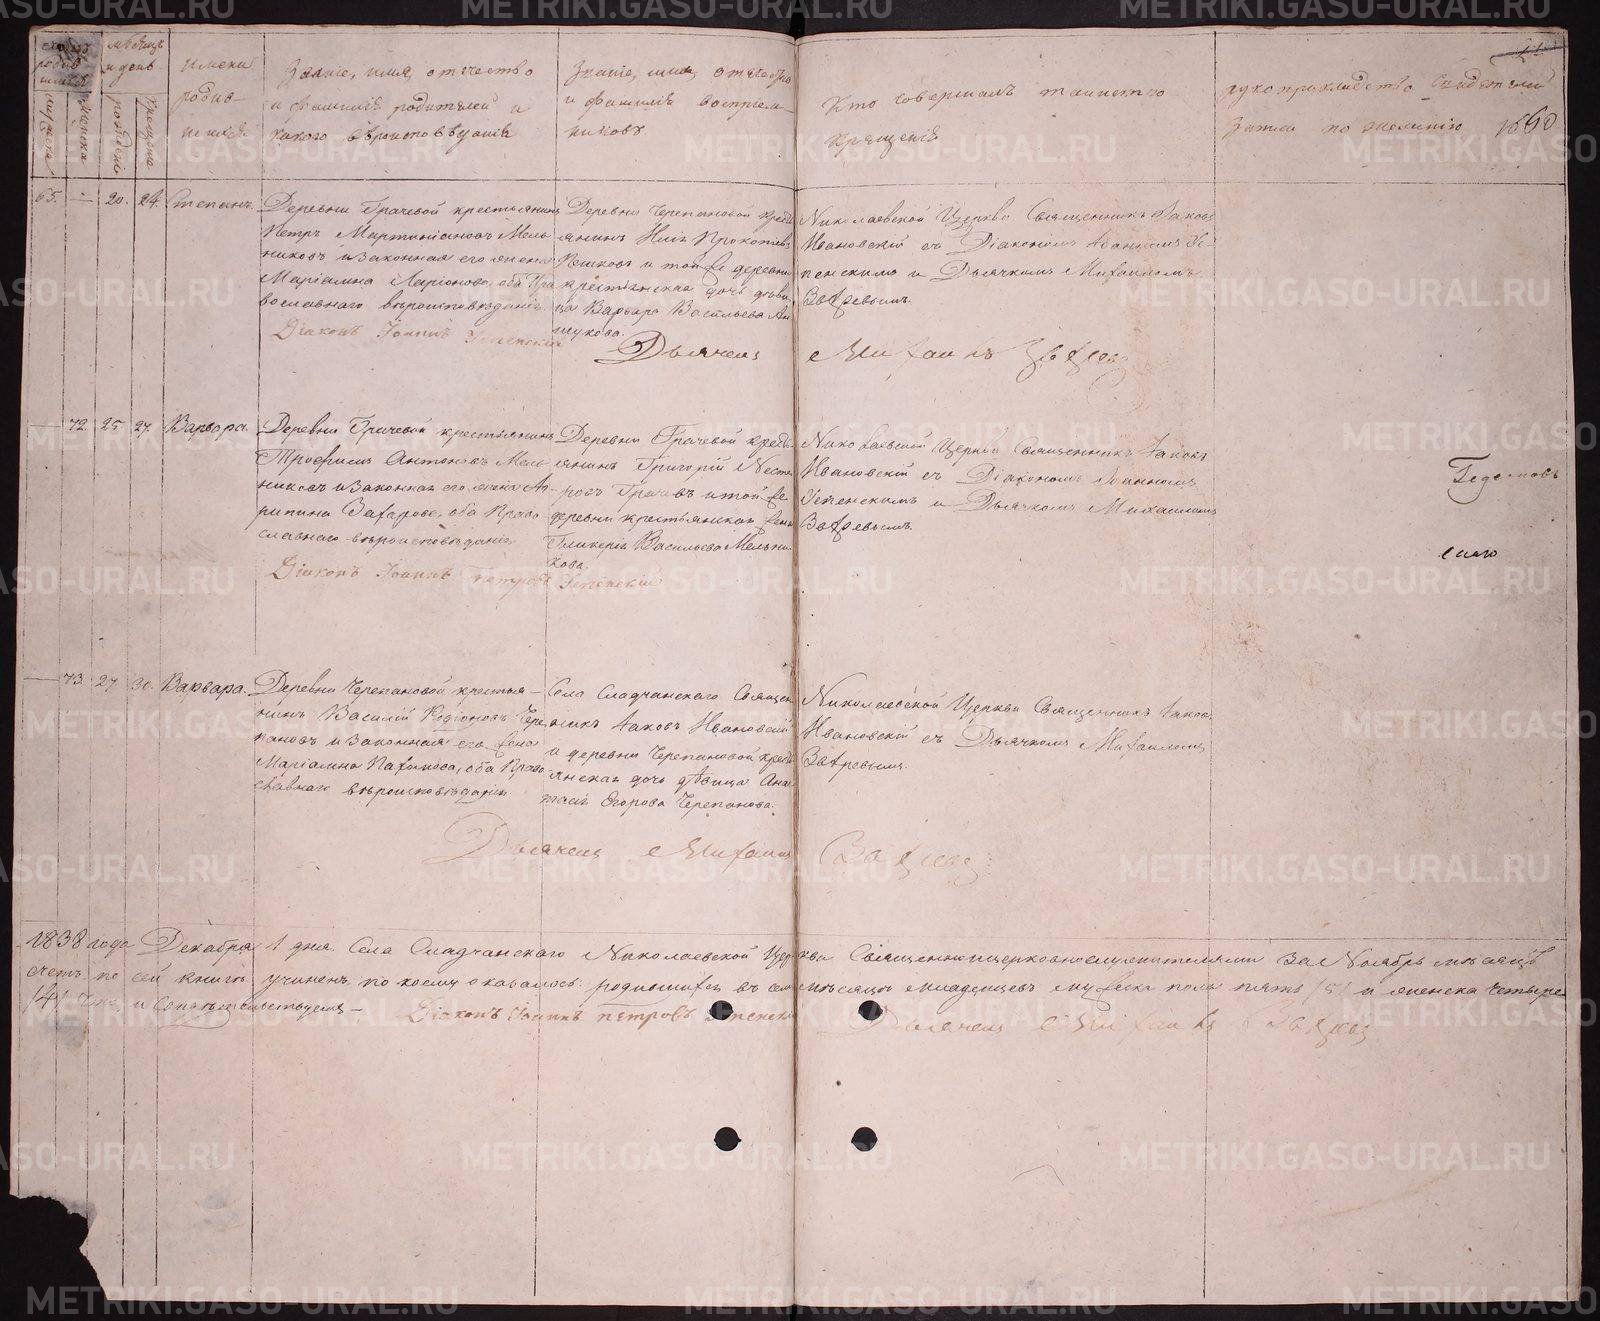 мѣсяцъ
и день
Имена
родив-
шихся
Званіе, имя, отчество
и фамилія родителей и
какого вѣроисповѣданія
Званіе, имя, отчество
и фамилія воспріем-
никовъ.
Кто совершалъ таинство
крещенія
рукоприкладство свидѣтелей
записи по желанію
1690
65. — 20. 24. Степанъ.
Деревни Грачевой крестьянинъ
Петръ Мартиніановъ Мель
никовъ и законная его жена
Маріамна Ларіонова, оба Пра
вославнаго вѣроисповѣданія
Діаконъ Іоаннъ Успенскій
Деревни Черепановой кресть
янинъ Илія Прокопьевъ
Пешковъ и той же деревни
крестьянская дочь дѣви
ца Варвара Васильева
Николаевской Церкви Священникъ Іаковъ
Ивановскій съ Діакономъ Іоанномъ Ус-
пенскимъ и Дьячкомъ Михаиломъ
Звѣревымъ.
Дьячекъ Михаилъ Звѣревъ
— 72. 25. 27. Варвара.
Деревни Грачевой крестьянинъ
Трофимъ Антоновъ Мель
никовъ и законная его жена Аг-
рипина Захарова, оба Право
славнаго вѣроисповѣданія
Діаконъ Іоаннъ Петровъ Успенскій
Деревни Грачевой кресть
янинъ Григорій Несте
ровъ Грачевъ и той же
деревни крестьянская жена
Гликерія Васильева Мельни
кова.
Николаевской Церкви Священникъ Іаковъ
Ивановскій съ Діакономъ Іоанномъ
Успенскимъ и Дьячкомъ Михаиломъ
Звѣревымъ.
— 73. 27. 30. Варвара.
Деревни Черепановой крестья-
нинъ Василій Родіоновъ Чере
пановъ и законная его жена
Маріамна Пахомова, оба Право
славнаго вѣроисповѣданія
Села Сладчанскаго Священ
никъ Іаковъ Ивановскій
и деревни Черепановой кресть
янская дочь дѣвица Анас
тасія Егорова Черепанова.
Николаевской Церкви Священникъ Іаковъ
Ивановскій съ Дьячкомъ Михаиломъ
Звѣревымъ.
Дьячекъ Михаилъ Звѣревъ
1838 года Декабря 1 дня. Села Сладчанскаго Николаевской Церкви Священноцерковнослужителями за Ноябрь мѣсяцъ
счетъ по сей книгѣ учиненъ, по коему оказалось: родившихся въ семъ мѣсяцѣ младенцевъ мужеска пола пять (5) и женска четыре
(4) въ чемъ и свидѣтельствуемъ —
Діаконъ Іоаннъ Петровъ Успенскій
Дьячекъ Михаилъ Звѣревъ
METRIKI.GASO-URAL.RU